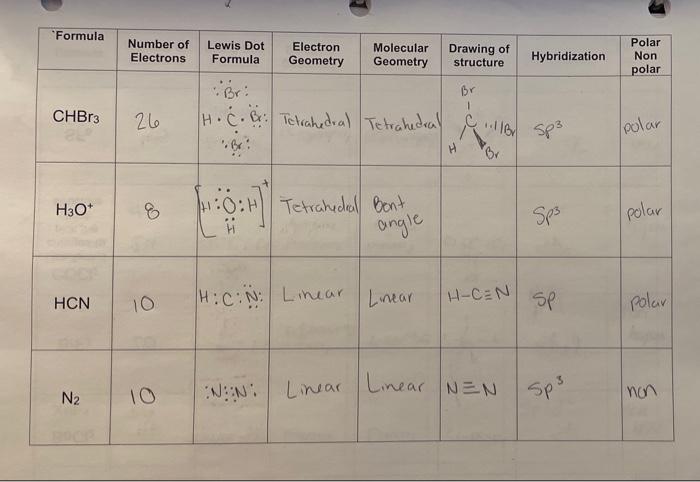 Formula
Number of Electrons
Lewis Dot Formula
Electron Geometry
Molecular Geometry
Drawing of structure
Hybridization
Polar Non polar
CHBr3
26
:Br:
H · C · Br:
:Br:
Tetrahedral
Tetrahedral
Br
C
Br
H
Br
Sp³
polar
H3O+
8
[H:O:H]+
H
Tetrahedral
Bent
angle
Sp³
polar
HCN
10
H:C:N:
Linear
Linear
H-C≡N
Sp
Polar
N2
10
:N::N:
Linear
Linear
N≡N
Sp³
non